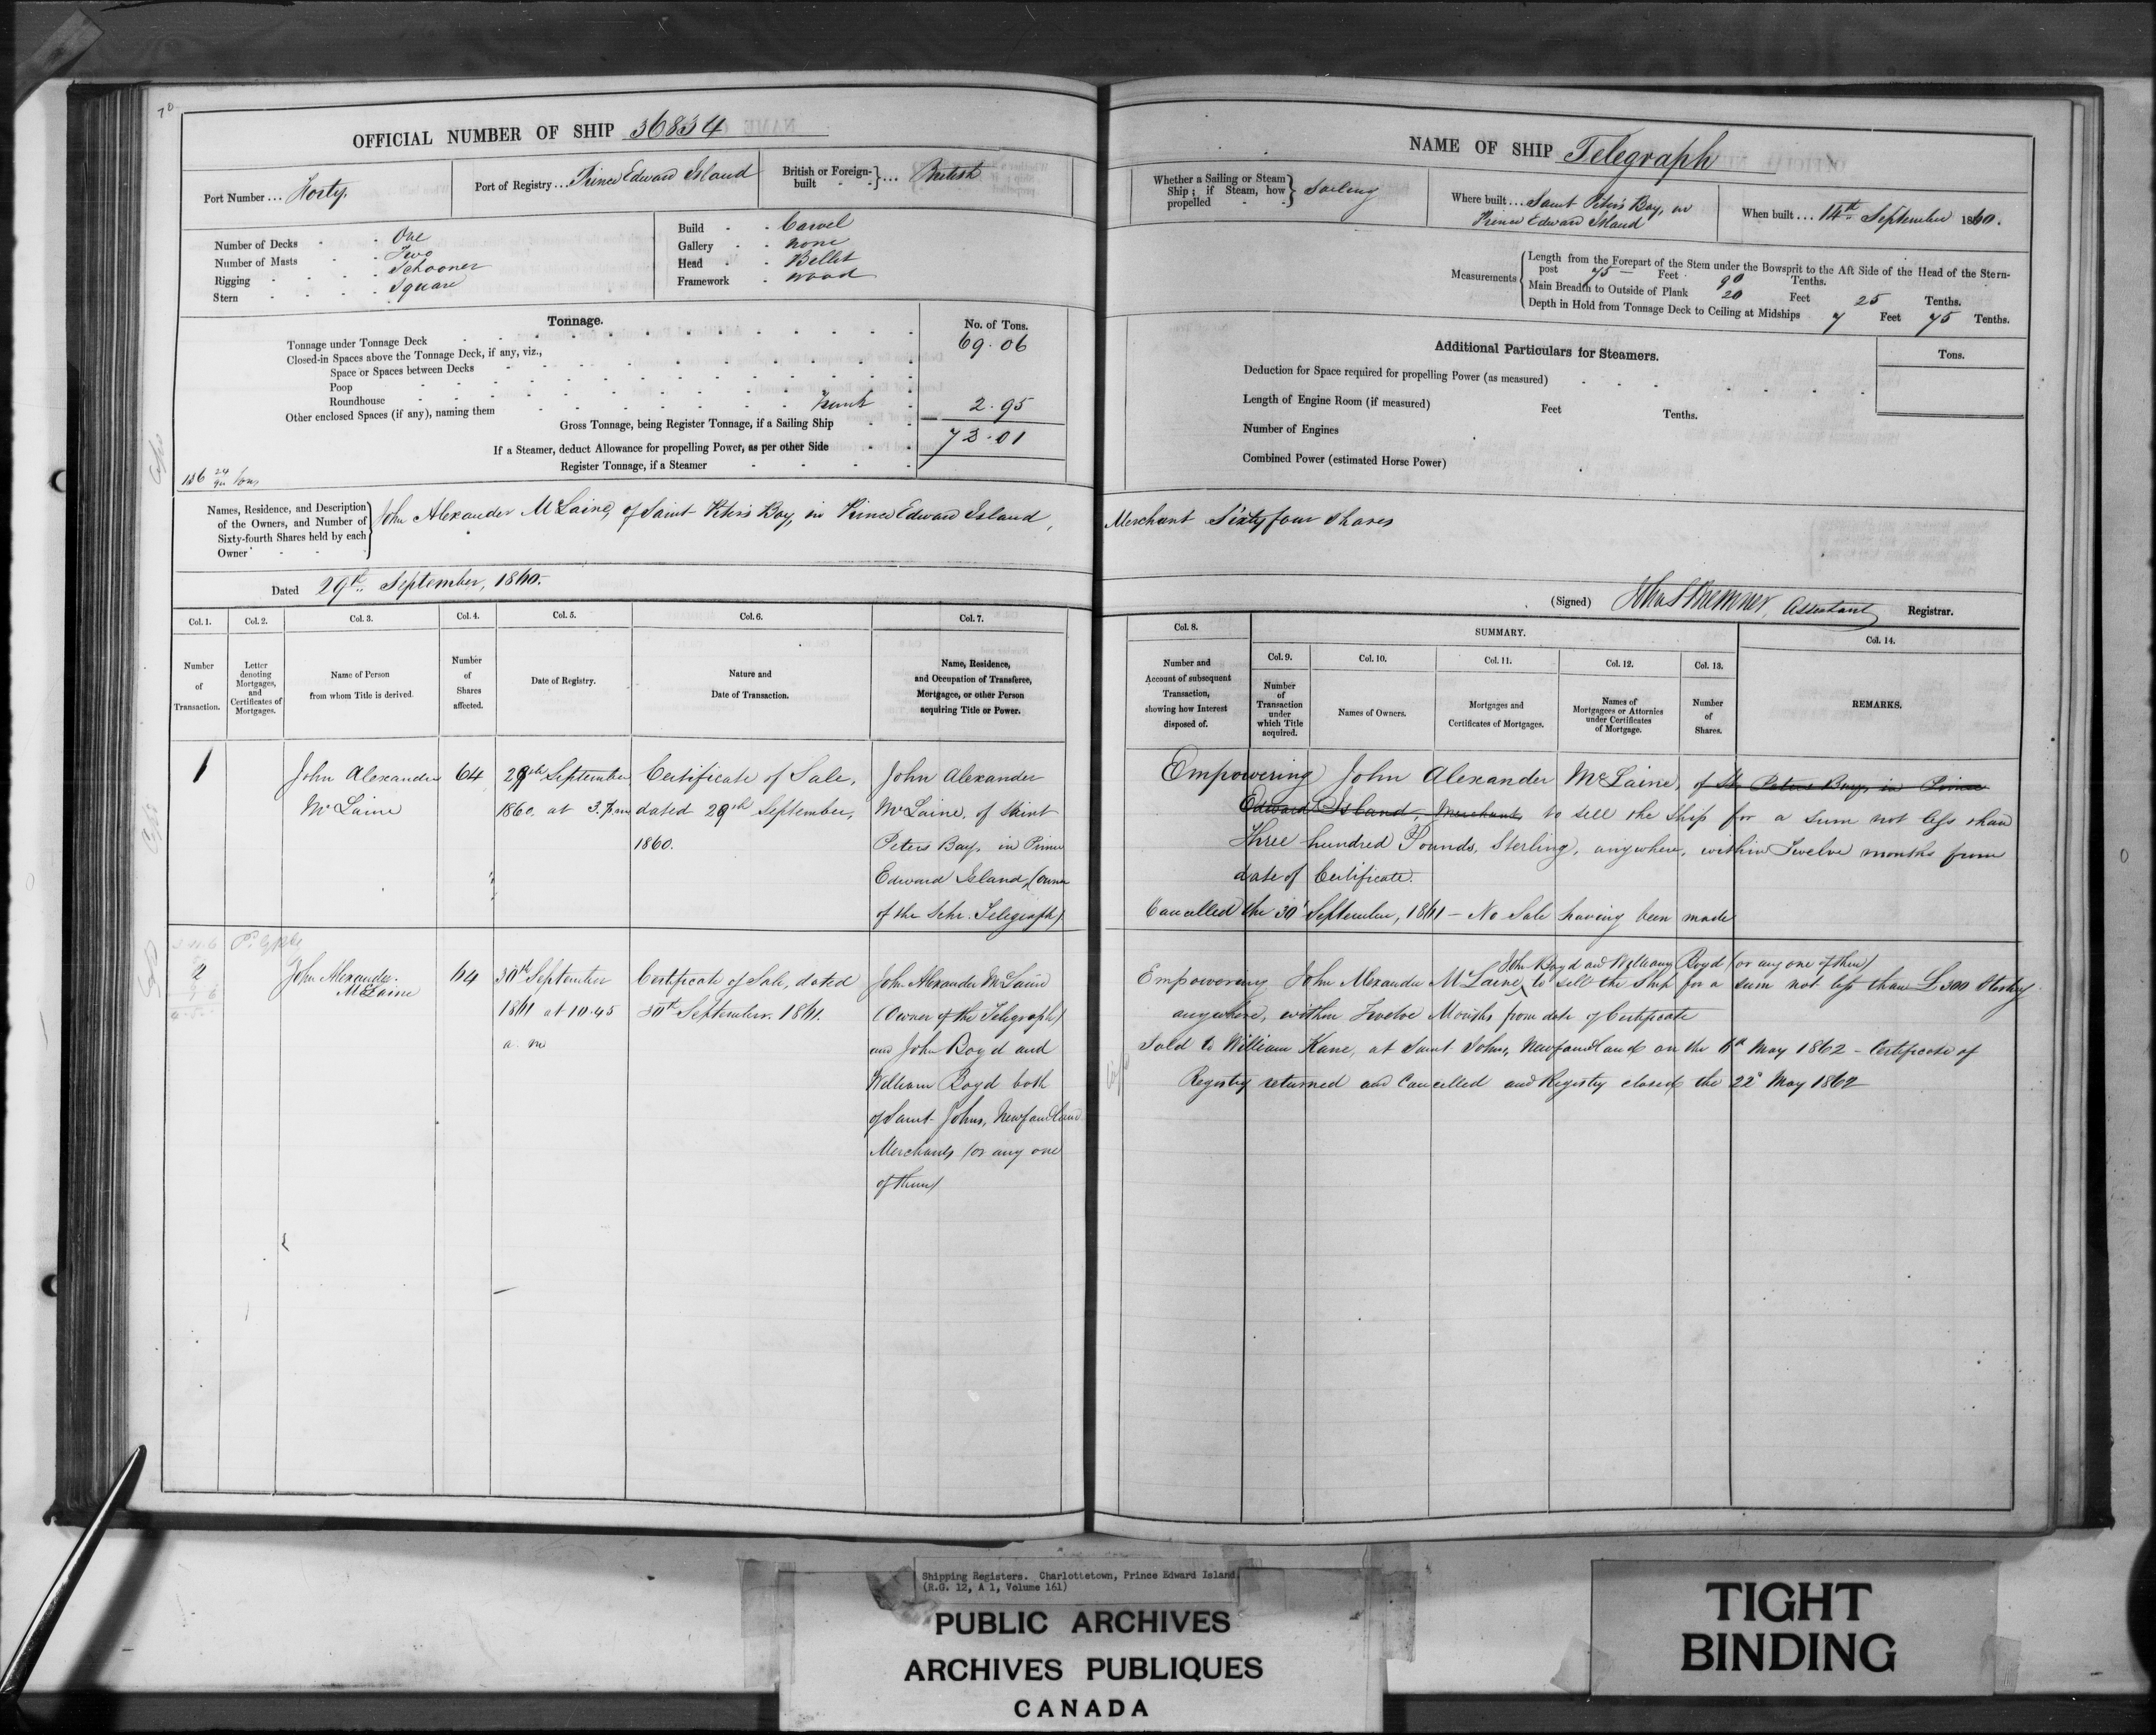 70
OFFICIAL NUMBER OF SHIP 36834
Port Number ... Forty.
Port of Registry ... Prince Edward Island
British or Foreign-built } ... British
Number of Decks - - One
Number of Masts - - Two
Rigging - - Schooner
Stern - - Square
Build - - Carvel
Gallery - - none
Head - - Billet
Framework - wood
Tonnage.
No. of Tons.
Tonnage under Tonnage Deck 69.06
Closed-in Spaces above the Tonnage Deck, if any, viz.,
Space or Spaces between Decks
Poop
Roundhouse
Other enclosed Spaces (if any), naming them Trunk 2.95
Gross Tonnage, being Register Tonnage, if a Sailing Ship 73.01
If a Steamer, deduct Allowance for propelling Power, as per other Side
Register Tonnage, if a Steamer
136 24/94 tons
Names, Residence, and Description of the Owners, and Number of Sixty-fourth Shares held by each Owner
John Alexander McLaine, of Saint Peter's Bay, in Prince Edward Island,
Dated 29th September, 1860.
Col. 1. Col. 2. Col. 3. Col. 4. Col. 5. Col. 6. Col. 7.
Number of Transaction.
Letter denoting Mortgages, and Certificates of Mortgages.
Name of Person from whom Title is derived.
Number of Shares affected.
Date of Registry.
Nature and Date of Transaction.
Name, Residence, and Occupation of Transferee, Mortgagee, or other Person acquiring Title or Power.
1 John Alexander 64 29th September Certificate of Sale, John Alexander
McLaine 1860, at 3. p.m. dated 29th September, McLaine, of Saint
1860. Peters Bay, in Prince
Edward Island, (Owner
of the Schr. Telegraph)
2 John Alexander 64 30th September Certificate of Sale, dated John Alexander McLaine
McLaine 1861 at 10.45 30th September. 1861. (Owner of the Telegraph)
a. m and John Boyd and
William Boyd both
of Saint Johns, Newfoundland
Merchants (or any one
of them)
NAME OF SHIP Telegraph
Whether a Sailing or Steam Ship; if Steam, how propelled } Sailing
Where built ... Saint Peter's Bay, in
Prince Edward Island
When built ... 14th September 1860.
Measurements
Length from the Forepart of the Stem under the Bowsprit to the Aft Side of the Head of the Stern-
post 75 — Feet 90 Tenths.
Main Breadth to Outside of Plank 20 Feet 25 Tenths.
Depth in Hold from Tonnage Deck to Ceiling at Midships 7 Feet 75 Tenths.
Additional Particulars for Steamers.
Tons.
Deduction for Space required for propelling Power (as measured)
Length of Engine Room (if measured) Feet Tenths.
Number of Engines
Combined Power (estimated Horse Power)
Merchant Sixty four Shares
(Signed) Assistant Registrar.
Col. 8. SUMMARY. Col. 14.
Col. 9. Col. 10. Col. 11. Col. 12. Col. 13.
Number and Account of subsequent Transaction, showing how Interest disposed of.
Number of Transaction under which Title acquired.
Names of Owners.
Mortgages and Certificates of Mortgages.
Names of Mortgagees or Attornies under Certificates of Mortgage.
Number of Shares.
REMARKS.
Empowering John Alexander McLaine, of St. Peters Bay, in Prince
Edward Island, Merchant, to sell the Ship for a sum not less than
Three hundred Pounds, Sterling, anywhere, within Twelve months from
date of Certificate.
Cancelled the 30' September, 1861 - No Sale having been made
John Boyd and William Boyd (or any one of them)
Empowering John Alexander McLaine, to sell the Ship for a sum not less than £300 Sterling
anywhere, within Twelve Months from date of Certificate
Sold to William Kane, at Saint Johns, Newfoundland on the May 1862 - Certificate of
Registry returned and Cancelled and Registry closed the 22d May 1862
Shipping Registers. Charlottetown, Prince Edward Island.
(R.G. 12, A 1, Volume 161)
PUBLIC ARCHIVES
ARCHIVES PUBLIQUES
CANADA
TIGHT
BINDING